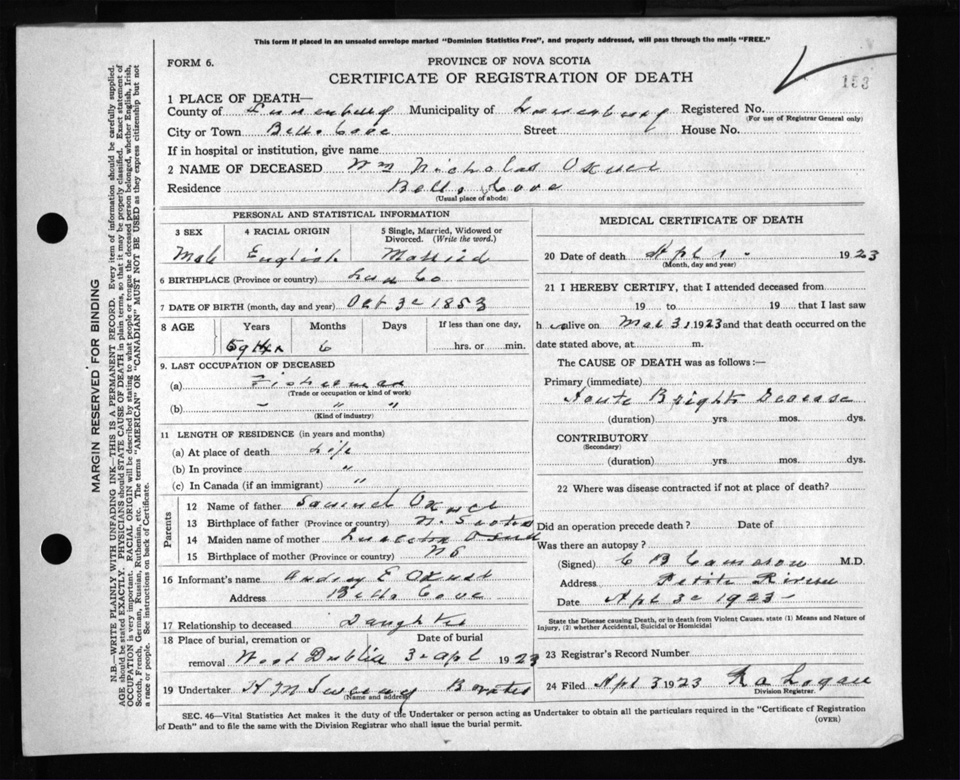 This form if placed in an unsealed envelope marked "Dominion Statistics Free", and properly addressed, will pass through the mails "FREE."
FORM 6.
PROVINCE OF NOVA SCOTIA
CERTIFICATE OF REGISTRATION OF DEATH
153
1 PLACE OF DEATH—
County of Lunenburg Municipality of Lunenburg Registered No.
(For use of Registrar General only)
City or Town Bells Cove Street House No.
If in hospital or institution, give name
2 NAME OF DECEASED Wm Nicholas
Residence Bells Cove
(Usual place of abode)
PERSONAL AND STATISTICAL INFORMATION
3 SEX 4 RACIAL ORIGIN 5 Single, Married, Widowed or Divorced. (Write the word.)
Male English Married
6 BIRTHPLACE (Province or country) Lun Co
7 DATE OF BIRTH (month, day and year) Oct 1853
8 AGE Years Months Days If less than one day,
6 hrs. or min.
9. LAST OCCUPATION OF DECEASED
(a) Fisherman
(Trade or occupation or kind of work)
(b) " "
(Kind of industry)
11 LENGTH OF RESIDENCE (in years and months)
(a) At place of death Life
(b) In province "
(c) In Canada (if an immigrant) "
Parents
12 Name of father Samuel
13 Birthplace of father (Province or country) N. Scotia
14 Maiden name of mother
15 Birthplace of mother (Province or country) NS
16 Informant's name E
Address Bells Cove
17 Relationship to deceased Daughter
18 Place of burial, cremation or removal West Dublin Date of burial 3 Apl 1923
19 Undertaker H M Sweeny
(Name and address)
MEDICAL CERTIFICATE OF DEATH
20 Date of death Apl 1 - 1923
(Month, day and year)
21 I HEREBY CERTIFY, that I attended deceased from
19 to 19 that I last saw
h alive on Mar 31 1923 and that death occurred on the
date stated above, at m.
The CAUSE OF DEATH was as follows :—
Primary (immediate)
Acute Brights Disease
(duration) yrs. mos. dys.
CONTRIBUTORY
(Secondary)
(duration) yrs. mos. dys.
22 Where was disease contracted if not at place of death?
Did an operation precede death? Date of
Was there an autopsy?
(Signed) C B Cameron M.D.
Address Petite Riviere
Date Apl 1923
State the Disease causing Death, or in death from Violent Causes, state (1) Means and Nature of Injury, (2) whether Accidental, Suicidal or Homicidal
23 Registrar's Record Number
24 Filed Apl 3 1923 Logan
Division Registrar.
SEC. 46—Vital Statistics Act makes it the duty of the Undertaker or person acting as Undertaker to obtain all the particulars required in the "Certificate of Registration
of Death" and to file the same with the Division Registrar who shall issue the burial permit.
(OVER)
MARGIN RESERVED FOR BINDING
N.B.—WRITE PLAINLY WITH UNFADING INK—THIS IS A PERMANENT RECORD. Every item of information should be carefully supplied.
AGE should be stated EXACTLY. PHYSICIANS should STATE CAUSE OF DEATH in plain terms, so that it may be properly classified. Exact statement of
OCCUPATION is very important. RACIAL ORIGIN will be described by stating to what people or tongue the deceased person belonged, whether English, Irish,
Scotch, French, German, Russian, Ruthenian, etc. The terms "AMERICAN" OR "CANADIAN" MUST NOT BE USED as they express citizenship but not
a race or people. See instructions on back of Certificate.